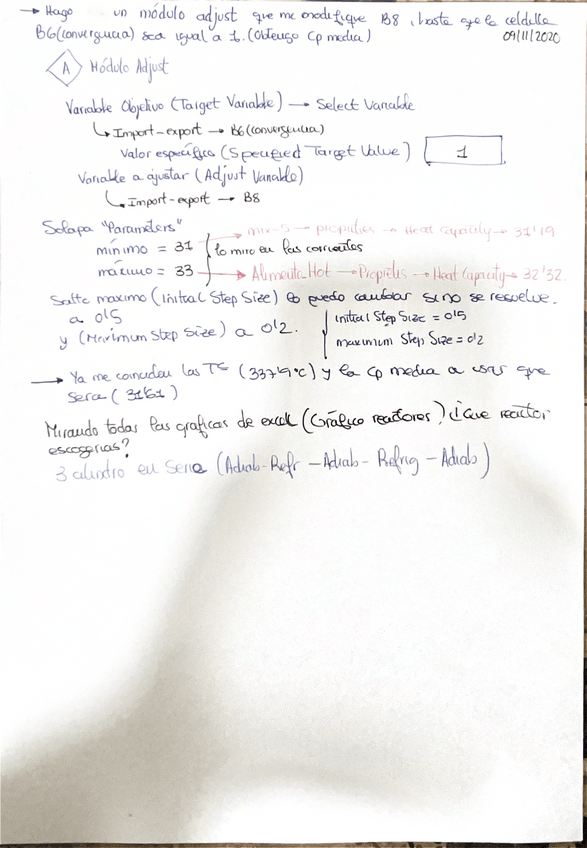 → Hago un módulo adjust que me modifique B8, hasta que la celdilla
B6(convergencia) sea igual a 1. (Obtengo Cp media)
09/11/2020
A Módulo Adjust
Variable Objetivo (Target Variable) → Select Variable
↳ Import-export → B6(convergencia)
Valor específico (Specified Target Value) 1
Variable a ajustar (Adjust Variable)
↳ Import-export → B8
Solapa "Parameters"
→ mix-5 → propities → Heat Capacity → 31'19
mínimo = 31
lo miro en las corrientes
máximo = 33 → Alimenta-Hot → Propities → Heat Capacity → 32'32
Salto maximo (initial Step Size) lo puedo cambiar si no se resuelve.
a 0'5
y (Maximum Step Size) a 0'2.
initial Step Size = 0'5
maximum Step Size = 0'2
→ Ya me coinciden las TS (337'9ºC) y la Cp media a usar que
sera (31'61)
Mirando todas las graficas de excel (Gráfico reactores) ¿Que reactor
escogerias?
3 cilindro en Serie (Adiab-Refr - Adiab - Refrig - Adiab)